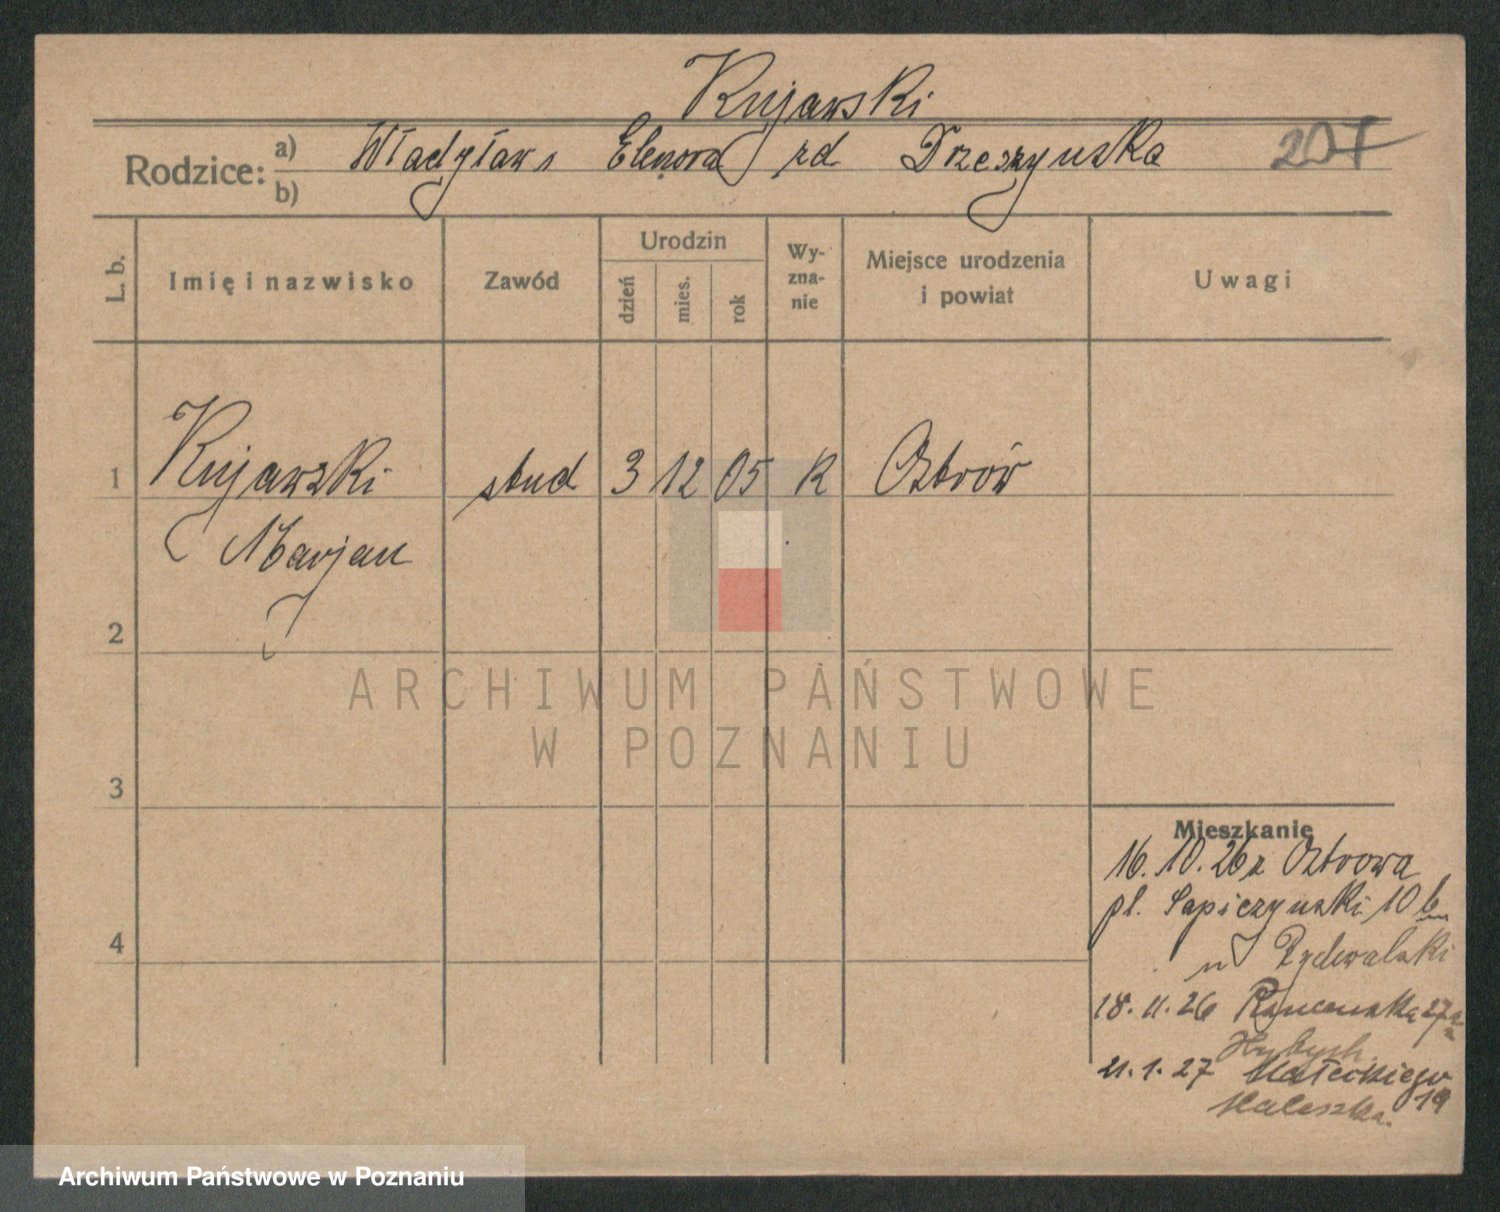 Kujawski
Rodzice: a) Władysław Elenora zd Drzeszyńska 207
b)
L. b. Imię i nazwisko Zawód Urodzin dzień mies. rok Wyznanie Miejsce urodzenia i powiat Uwagi
1 Kujawski stud 3 12 05 K Ostrów
Marjan
2
ARCHIWUM PAŃSTWOWE
W POZNANIU
3
Mieszkanie
16.10.26 z Ostrowa
pl. Sapieżyński 10 b
4
u Rydwalski
18.11.26 27a
21.1.27 Małeckiego
19
Archiwum Państwowe w Poznaniu